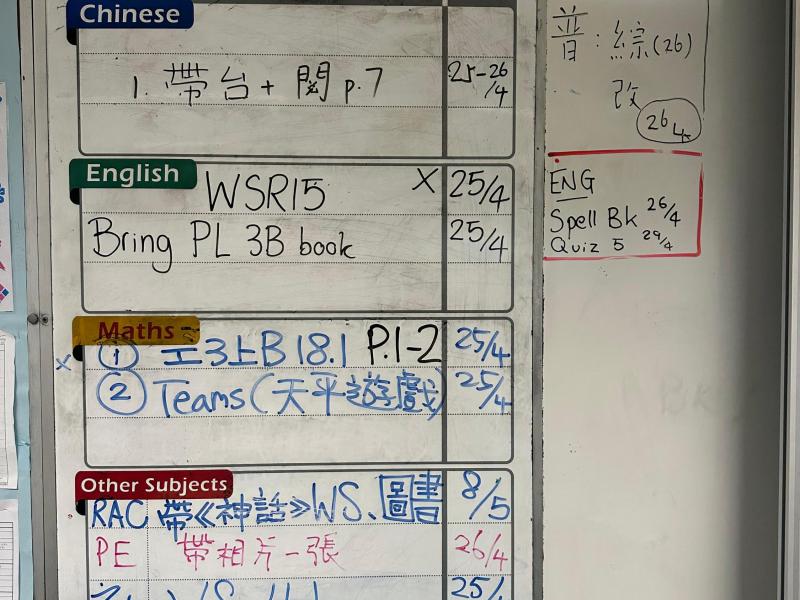 Chinese
1. 帶台 + 閱 p.7 25-26/4
English
WSR15 X 25/4
Bring PL 3B book 25/4
Maths
X ① 工3上B 18.1 P.1-2 25/4
② Teams (天平遊戲) 25/4
Other Subjects
RAC 帶《神話》WS、圖書 8/5
PE 帶相片一張 26/4
25/
普 : 綜 (26)
改
26/4
ENG
Spell Bk 26/4
Quiz 5 29/4